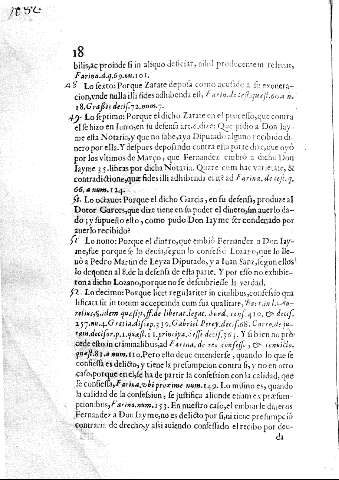 18
bilis, ac proinde si in aliquo deficiat, nihil producentem relevat,
Farina.d.q.69.nu.101.
48 Lo sexto: Porque Zarate depoſa como acuſado a ſu exonera-
cion, vnde nulla illi fides adhibenda eſt, Farin.de teſt.queſt.60.a n.
18. Graſsis deciſ.72.num.7.
49 Lo ſeptimo: Porque el dicho Zarate en el proceſſo, que contra
el ſe hizo en Iunio, en ſu defenſa art. dize: Que pidio a Don Iay-
me eſta Notaria, y que no ſabe, aya Diputado alguno recibido di-
nero por ella. Y deſpues depoſando contra eſta parte dize, que oyò
por los vltimos de Março, que Fernandez embiò a dicho Don
Iayme 25. libras por dicha Notaria. Quare cum hæc varietate, &
contradictione, quæ fides illi adhibenda erit? ad Farina, de teſt. q.
66. a num. 124.
50 Lo octauo: Porque el dicho Garcia, en ſu defenſa, produze al
Dotor Garces, que dize tiene en ſu poder el dinero, ſin auerlo da-
do; y ſupueſto eſto, como pudo Don Iayme ſer condenado por
auerlo recibido?
51 Lo nono: Porque el dinero, que embiò Fernandez a Don Iay-
me, fue porque ſe lo dezis, ſegun lo confieſſa Lozano, que lo lle-
uò a Pedro Martin de Leyza Diputado, y a Iuan Sanz, ſegun ellos
lo deponen al 8. de la defenſa de eſta parte. Y por eſſo no exhibie-
ron a dicho Lozano, porque no ſe deſcubrieſſe la verdad.
52 Lo decimo: Porque licet regulariter in ciuilibus, confeſsio qua
lificata ſit in totum acceptanda cum ſua qualitate,
257. nu.4. Gratia, diſcep.539. Gabriel Perey.deciſ.68.
Y ſi bien no pro-
cede eſto in criminalibus, ad Farina, de reo confeſſo, & conuicto.
queſt.83. a num.110. Pero eſto deue entenderſe, quando lo que ſe
confieſſa es delicto, y tiene la preſumpcion contra ſi, y no en otro
caſo, porque en el, ſe ha de partir la confeſsion con la calidad, que
ſe confieſſa, Farina, vbi proxime num.149. Lo miſmo es, quando
la calidad de la confeſsion, ſe juſtifica aliunde etiam ex præſum-
pcionibus, Farina, num.153. En nueſtro caſo, el embiar dineros
Fernandez a Don Iayme, no es delicto por ſi, ni tiene preſumpció
contraria de drecho, y aſsi auiendo confeſſado el recibo por deu-
da